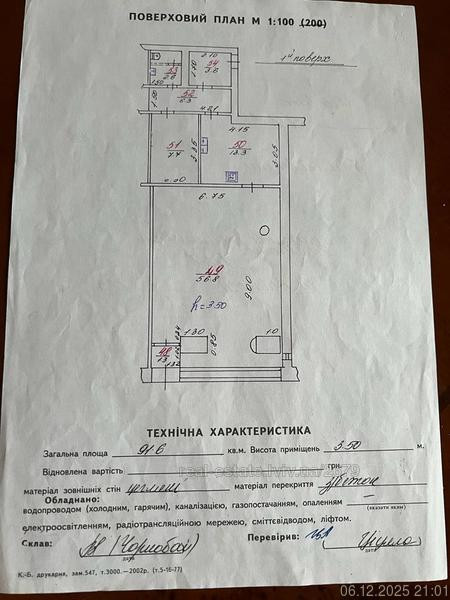 ПОВЕРХОВИЙ ПЛАН М 1:100 (200)
1й поверх
2.10
54
3.6
1.70
53
2.6
1.50
52
6.3
4.21
4.15
51
7.7
3.35
50
13.3
3.05
6.75
49
56.8
h=3.50
9.00
1.30
0.85
1.0
48
1.3
1.32
ТЕХНІЧНА ХАРАКТЕРИСТИКА
Загальна площа 91.6 кв.м. Висота приміщень 3.50 м.
Відновлена вартість грн.
real-estate.lviv.ua
матеріал зовнішніх стін цегляні матеріал перекриття з/бетон
Обладнано:
(вказати яким)
водопроводом (холодним, гарячим), каналізацією, газопостачанням, опаленням
електроосвітленням, радіотрансляційною мережею, сміттєвідводом, ліфтом.
Склав: Перевірив:
дата
дата
К.-Б. друкарня, зам.547, т.3000.—2002р. (т.5-16-77)
06.12.2025 21:01